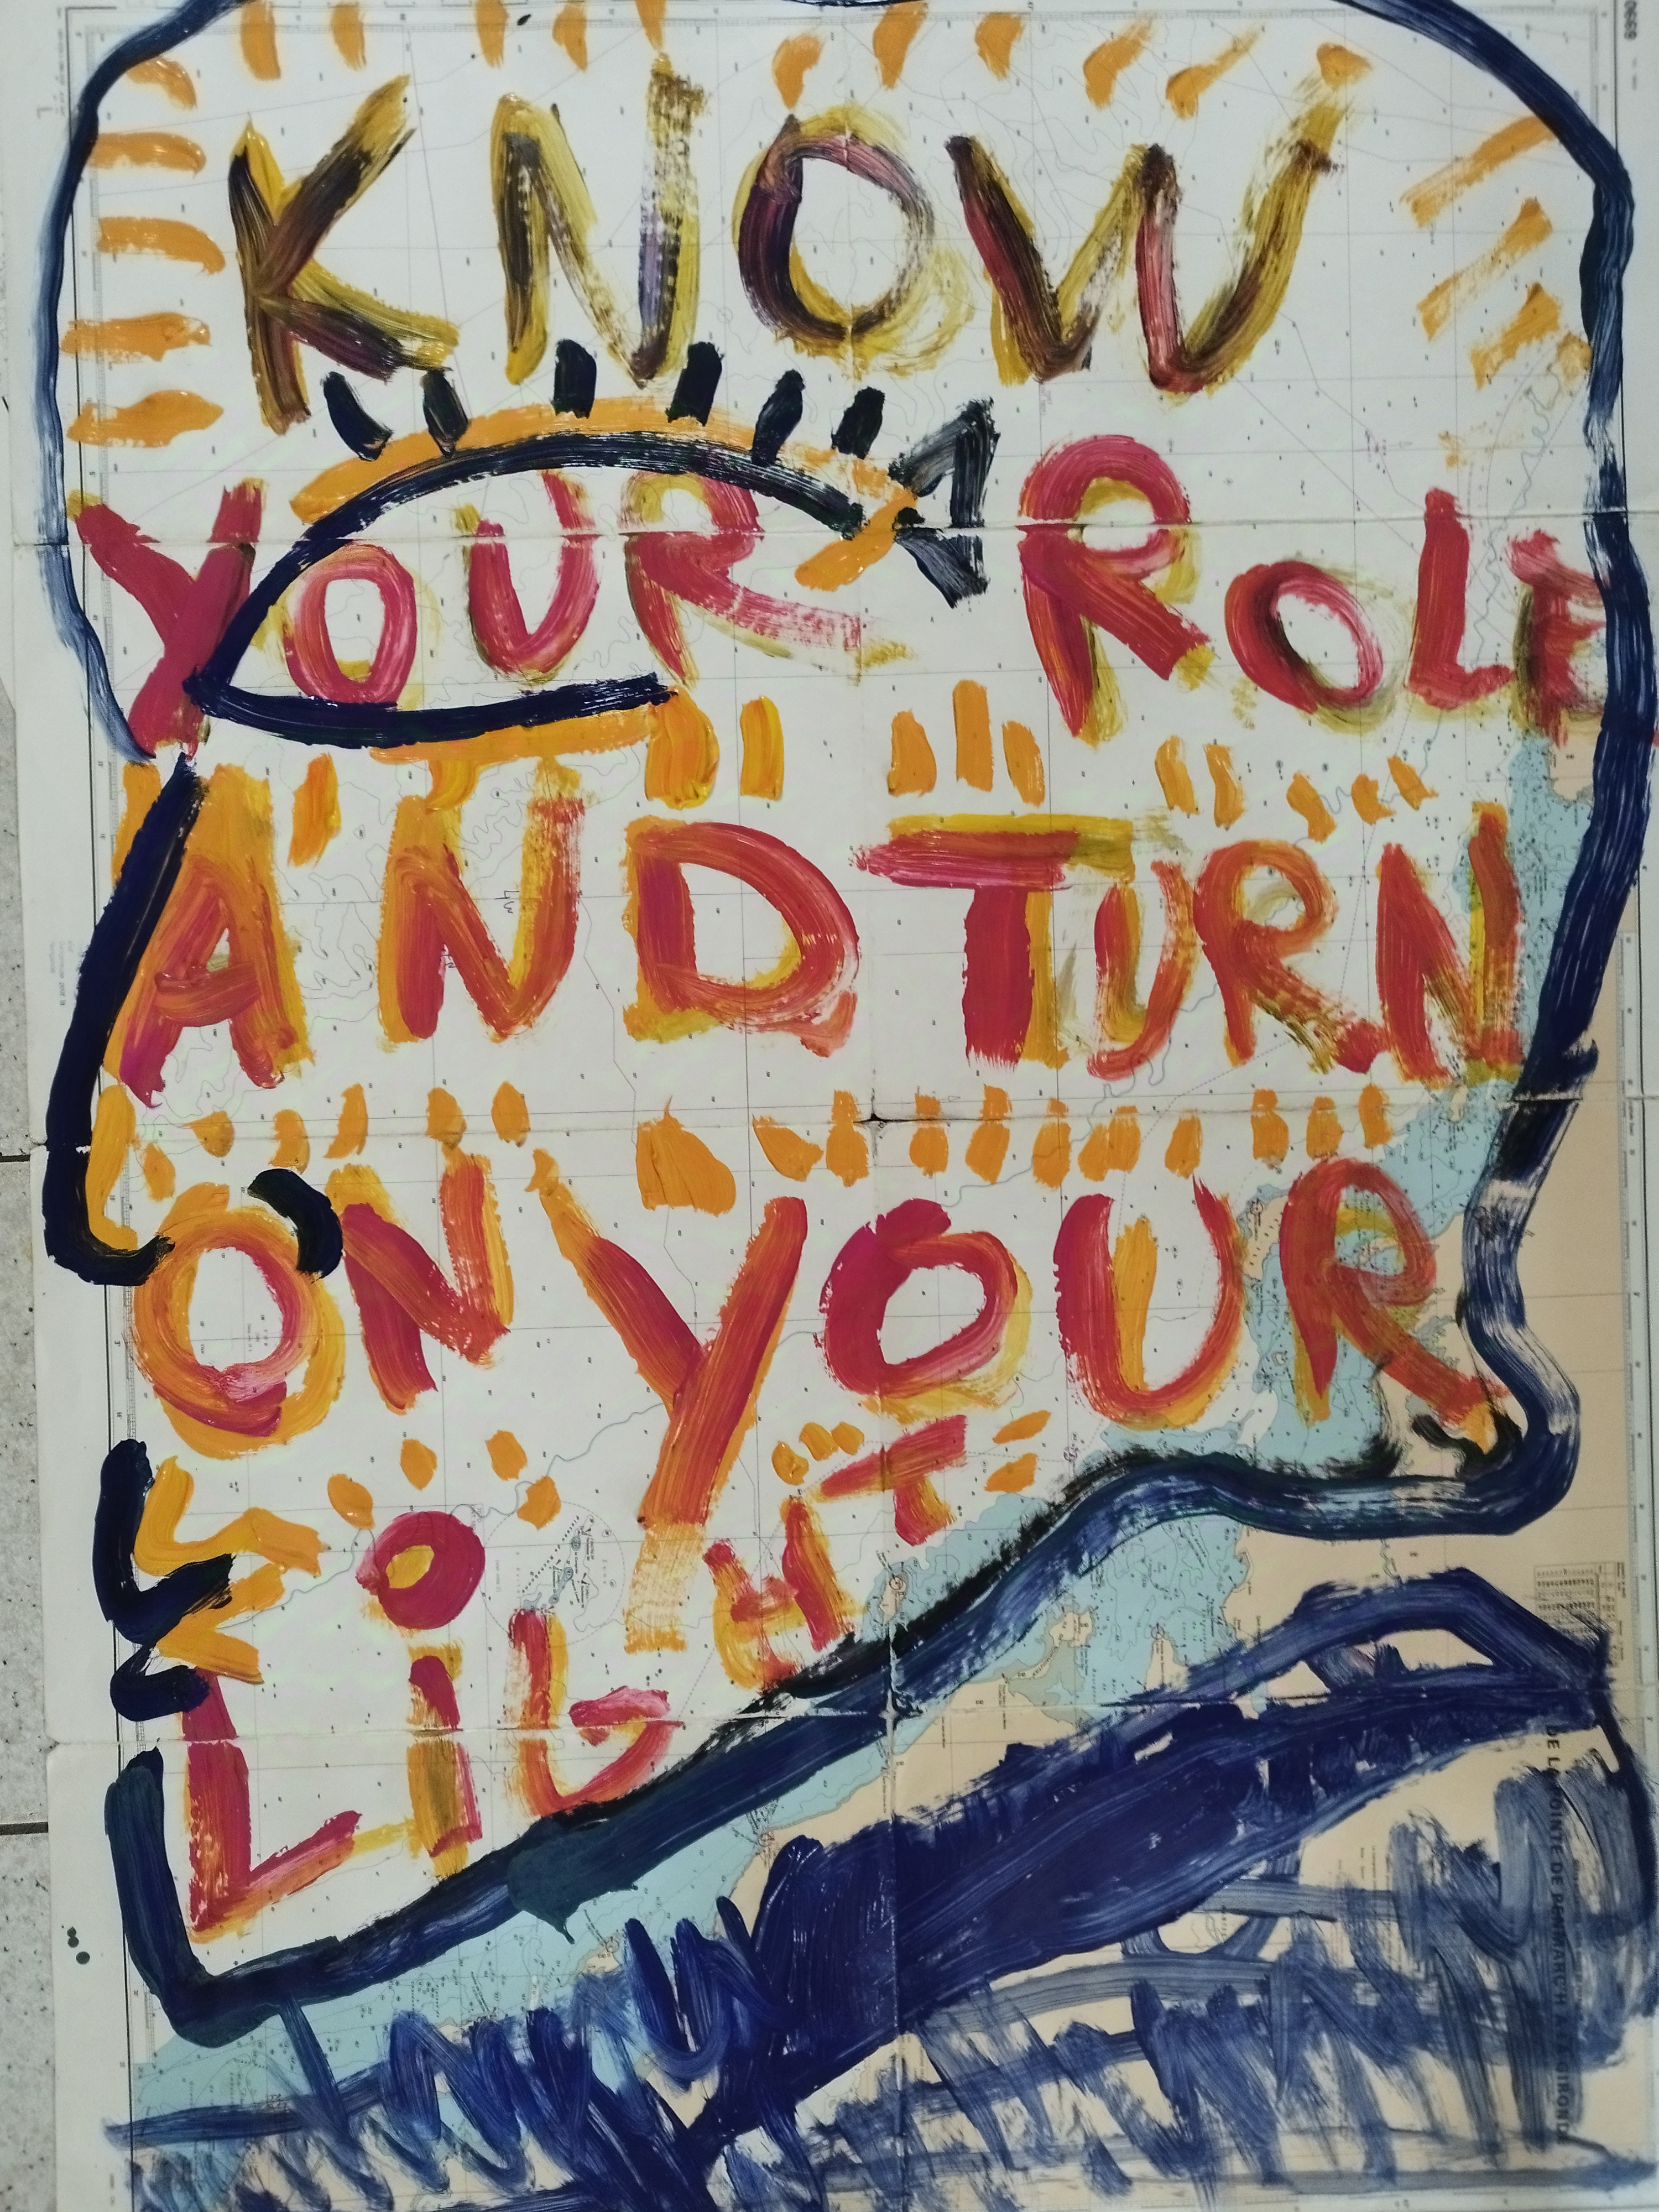 KNOW
YOUR ROLE
AND TURN
ON YOUR
LiGHT
DE LA POINTE DE PENMARC'H A LA GIRONDE